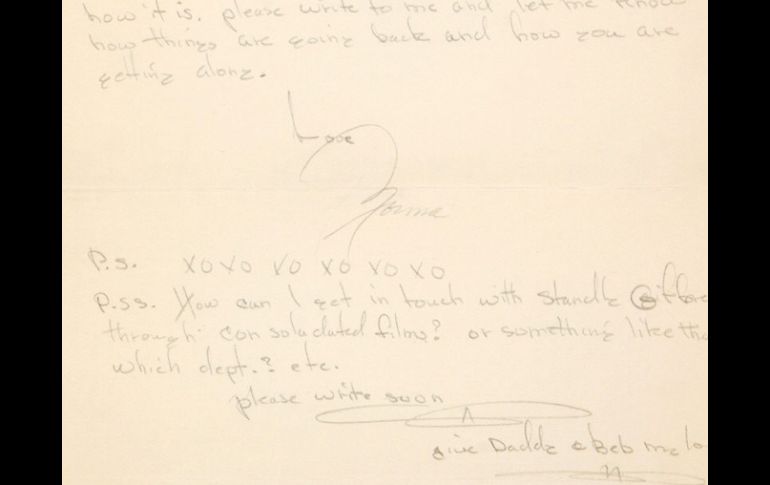 how it is. please write to me and let me know
how things are going back and how you are
getting along.
Love
Norma
P.s. XOXO XO XO XO XO
P.ss. How can I get in touch with
through consoladated films? or something like tha
which dept.? etc.
please write soon
give Dadde & Beb me lo